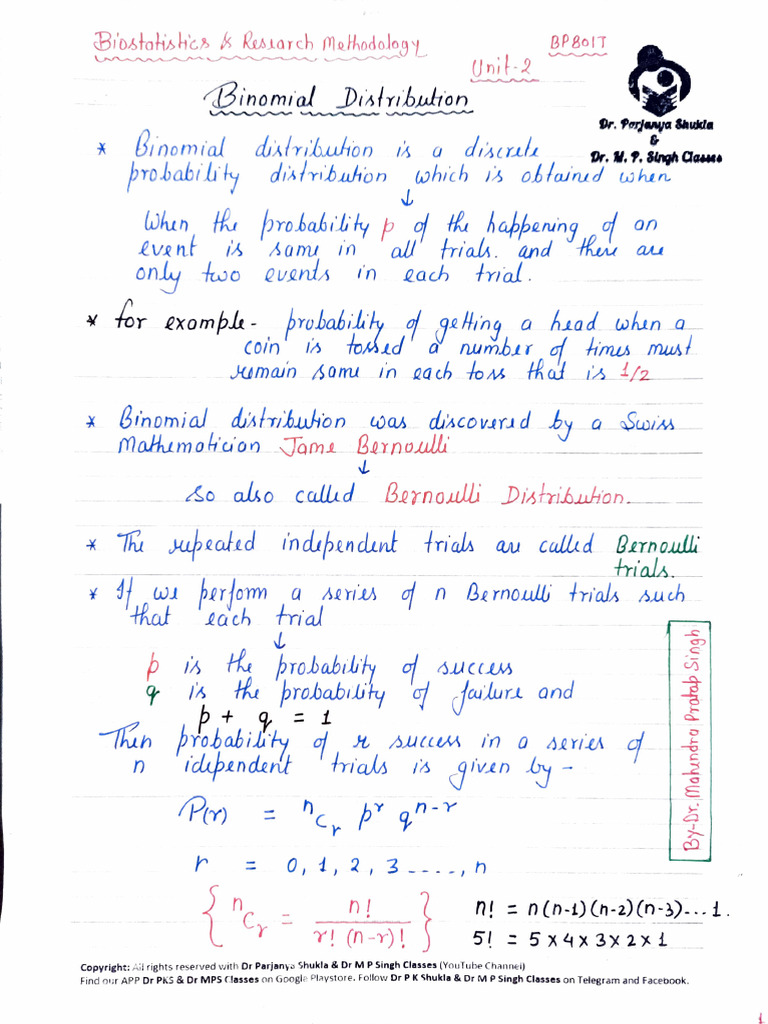 Biostatistics & Research Methodology BP801T
Unit-2
Binomial Distribution
Dr. Parjanya Shukla
&
Dr. M. P. Singh Classes
* Binomial distribution is a discrete
probability distribution which is obtained when
↓
When the probability p of the happening of an
event is same in all trials. and there are
only two events in each trial.
* for example- probability of getting a head when a
coin is tossed a number of times must
remain same in each toss that is 1/2
* Binomial distribution was discovered by a Swiss
Mathematician Jame Bernoulli
↓
So also called Bernoulli Distribution.
* The repeated independent trials are called Bernoulli
trials.
* If we perform a series of n Bernoulli trials such
that each trial
↓
p is the probability of success
q is the probability of failure and
p + q = 1
Then probability of r success in a series of
n idependent trials is given by -
P(r) = ⁿCᵣ pʳ qⁿ⁻ʳ
r = 0, 1, 2, 3 ....., n
{ ⁿCᵣ = n! / r! (n-r)! }
n! = n(n-1)(n-2)(n-3)...1.
5! = 5 x 4 x 3 x 2 x 1
By-Dr. Mahendra Pratap Singh
Copyright: All rights reserved with Dr Parjanya Shukla & Dr M P Singh Classes (YouTube Channel)
Find our APP Dr PKS & Dr MPS Classes on Google Playstore. Follow Dr P K Shukla & Dr M P Singh Classes on Telegram and Facebook.
1